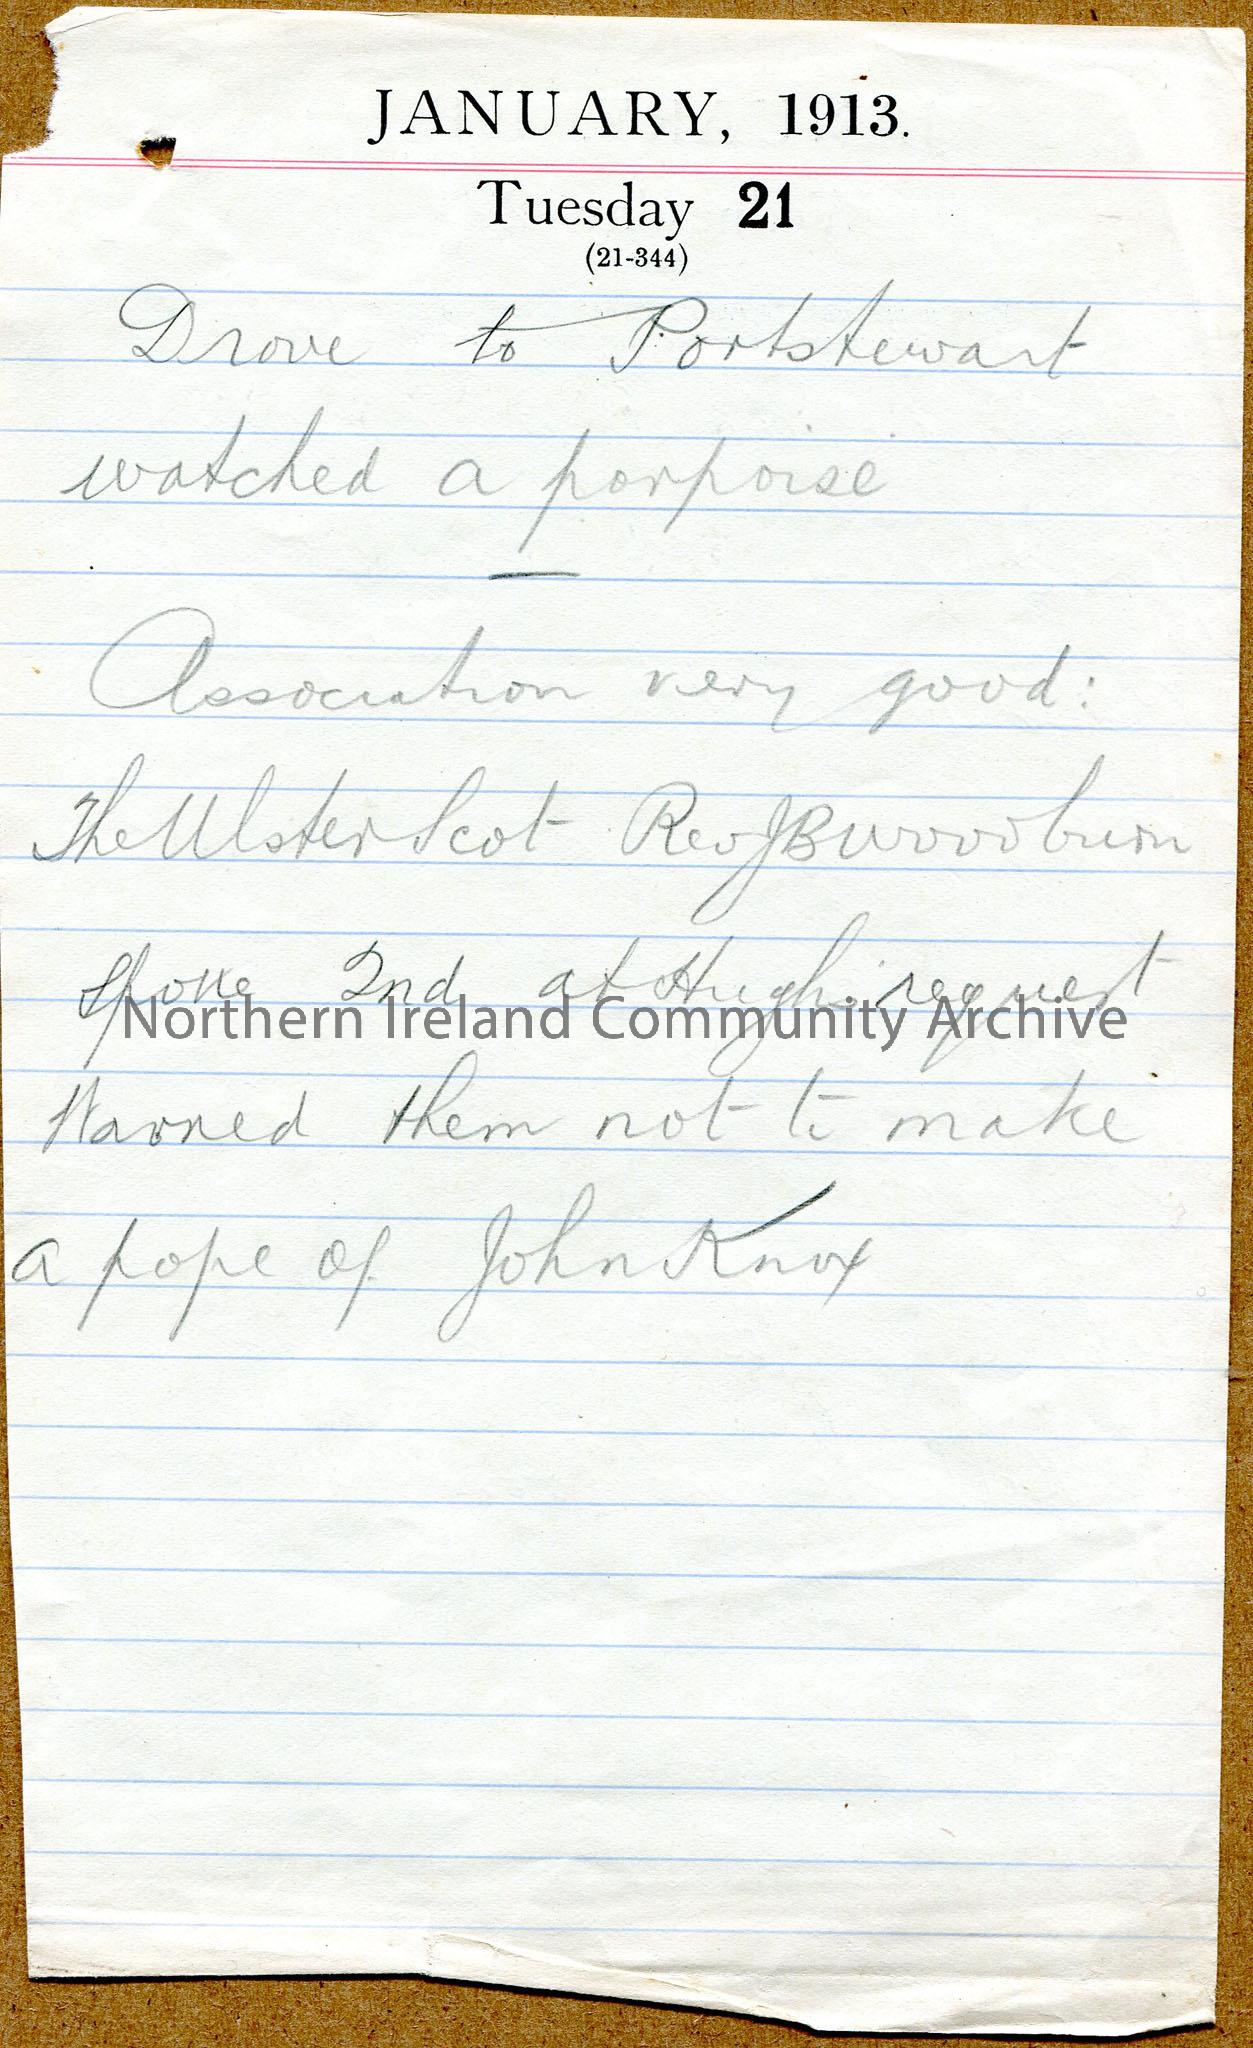 JANUARY, 1913.
Tuesday 21
(21-344)
Drove to Portstewart
watched a porpoise
—
Association very good:
The Ulster Scot Rev J B Woodburn
Spoke 2nd at Hugh's request
Northern Ireland Community Archive
Warned them not to make
a pope of John Knox